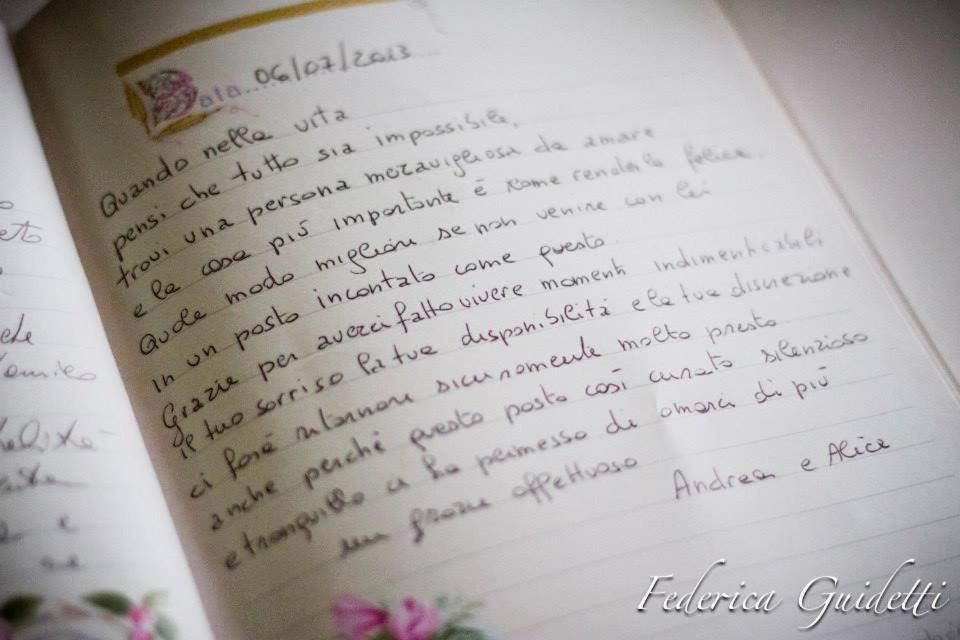 Data....06/07/2013....
Quando nella vita
pensi che tutto sia impossibile,
trovi una persona meravigliosa da amare
e la cosa più importante è come renderla felice.
Quale modo migliore se non venire con lei
in un posto incontato come questo.
Grazie per averci fatto vivere momenti indimenticabili
il tuo sorriso la tua disponibilità e la tua discrezione
ci farà ritornare sicuramente molto presto.
anche perché questo posto così curato silenzioso
e tranquillo ci ha permesso di amarci di più
un grazie affettuoso
Andrea e Alice
Federica Guidetti